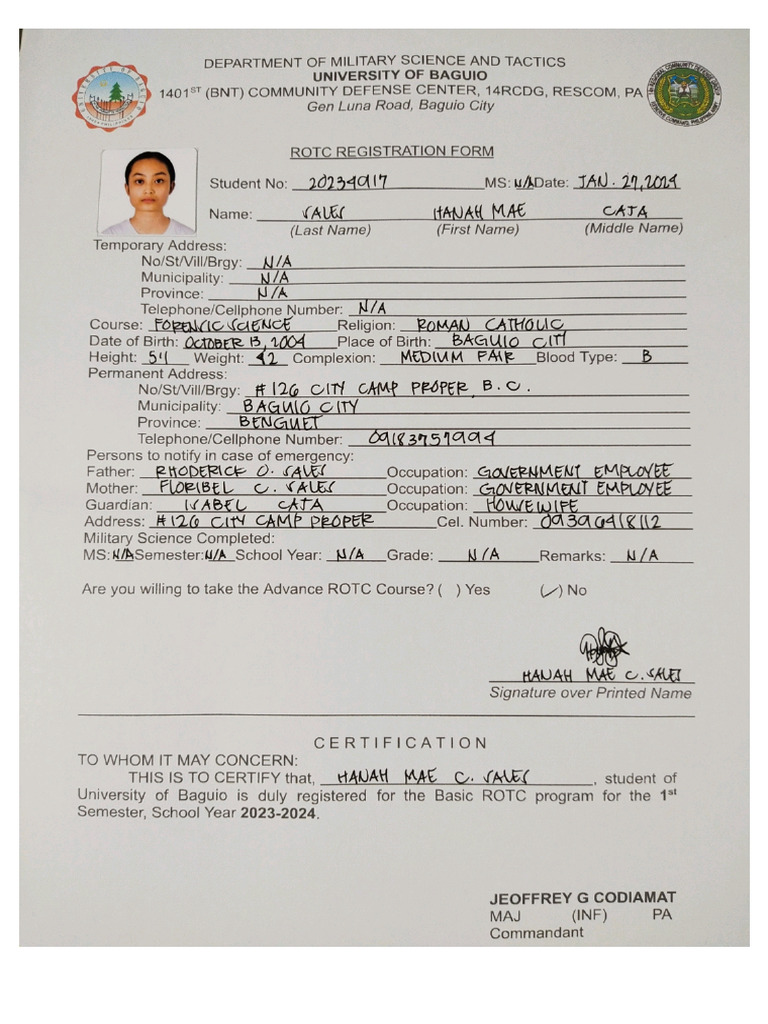 DEPARTMENT OF MILITARY SCIENCE AND TACTICS
UNIVERSITY OF BAGUIO
1401ST (BNT) COMMUNITY DEFENSE CENTER, 14RCDG, RESCOM, PA
Gen Luna Road, Baguio City
ROTC REGISTRATION FORM
Student No: 20234917 MS: N/A Date: JAN. 27, 2024
Name: SALES HANAH MAE CAJA
(Last Name) (First Name) (Middle Name)
Temporary Address:
No/St/Vill/Brgy: N/A
Municipality: N/A
Province: N/A
Telephone/Cellphone Number: N/A
Course: FORENSIC SCIENCE Religion: ROMAN CATHOLIC
Date of Birth: OCTOBER 13, 2004 Place of Birth: BAGUIO CITY
Height: 5'1 Weight: 42 Complexion: MEDIUM FAIR Blood Type: B
Permanent Address:
No/St/Vill/Brgy: # 126 CITY CAMP PROPER B.C.
Municipality: BAGUIO CITY
Province: BENGUET
Telephone/Cellphone Number: 09183757994
Persons to notify in case of emergency:
Father: RHODERICK O. SALES Occupation: GOVERNMENT EMPLOYEE
Mother: FLORIBEL C. SALES Occupation: GOVERNMENT EMPLOYEE
Guardian: ISABEL CAJA Occupation: HOUSEWIFE
Address: # 126 CITY CAMP PROPER Cel. Number: 09396418112
Military Science Completed:
MS: N/A Semester: N/A School Year: N/A Grade: N/A Remarks: N/A
Are you willing to take the Advance ROTC Course? ( ) Yes (✓) No
HANAH MAE C. SALES
Signature over Printed Name
CERTIFICATION
TO WHOM IT MAY CONCERN:
THIS IS TO CERTIFY that, HANAH MAE C. SALES, student of
University of Baguio is duly registered for the Basic ROTC program for the 1st
Semester, School Year 2023-2024.
JEOFFREY G CODIAMAT
MAJ (INF) PA
Commandant